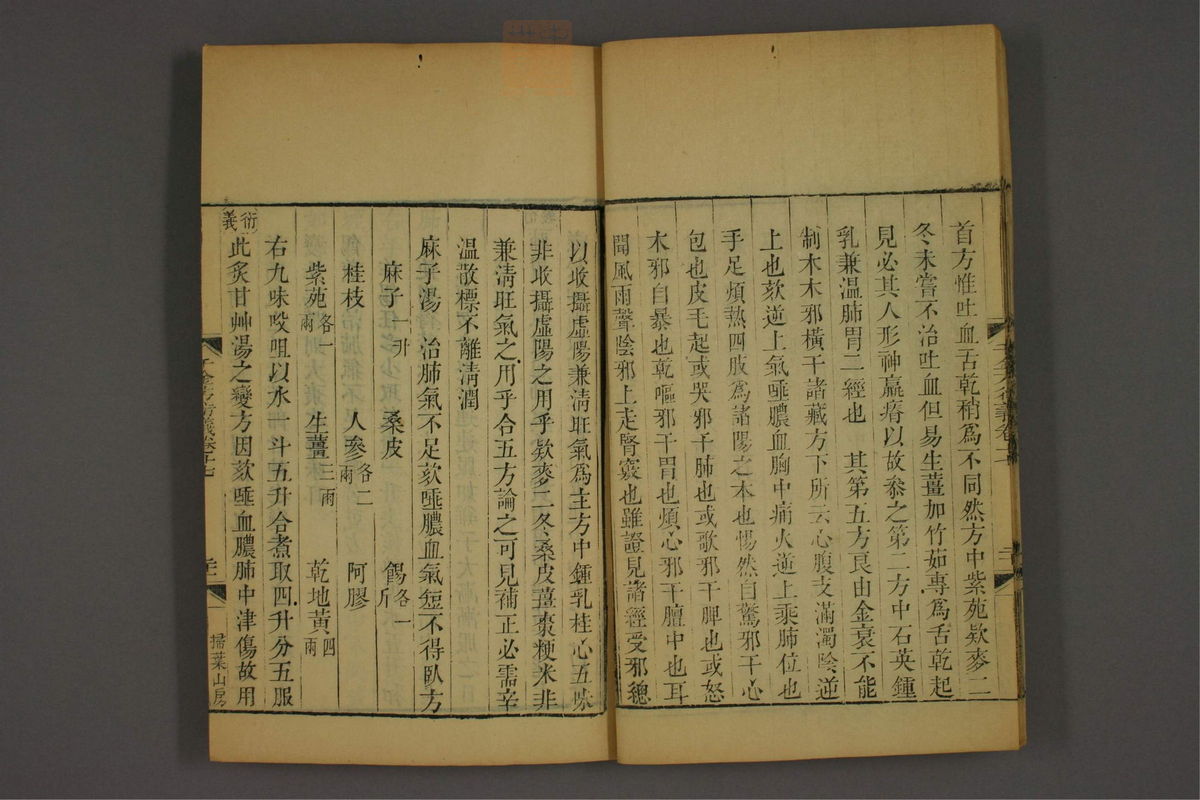 首方惟吐血舌乾稍爲不同然方中紫苑欵麥二
冬未嘗不治吐血但易生薑加竹茹專爲舌乾起
見必其人形神羸瘠以故叅之第二方中石英鍾
乳兼温肺胃二經也 其第五方良由金衰不能
制木木邪橫干諸藏方下所云心腹支滿濁陰逆
上也欬逆上氣唾膿血胸中痛火逆上乘肺位也
手足煩熱四肢爲諸陽之本也惕然自驚邪干心
包也皮毛起或哭邪干肺也或歌邪干脾也或怒
木邪自暴也乾嘔邪干胃也煩心邪干膻中也耳
聞風雨聲陰邪上走腎竅也雖證見諸經受邪總
以收攝虛陽兼清旺氣爲主方中鍾乳桂心五味
非收攝虛陽之用乎欵麥二冬桑皮薑棗粳米非
兼清旺氣之用乎合五方論之可見補正必需辛
温散標不離清潤
麻子湯 治肺氣不足欬唾膿血氣短不得臥方
麻子一升 桑皮 餳各一斤
桂枝 人參各二兩 阿膠
紫苑各一兩 生薑三兩 乾地黃四兩
右九味㕮咀以水一斗五升合煮取四升分五服
衍義
此炙甘艸湯之變方因欬唾血膿肺中津傷故用
掃葉山房